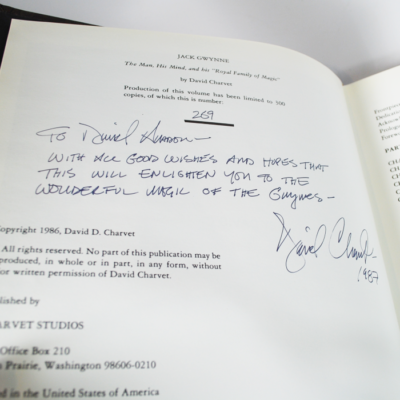 JACK GWYNNE
The Man, His Mind, and his "Royal Family of Magic"
by David Charvet
Production of this volume has been limited to 500
copies, of which this is number:
269
TO David
WITH ALL GOOD WISHES AND HOPES THAT
THIS WILL ENLIGHTEN YOU TO THE
WONDERFUL MAGIC OF THE Gwynnes —
David Charvet
1987
opyright 1986, David D. Charvet
All rights reserved. No part of this publication may be
produced, in whole or in part, in any form, without
or written permission of David Charvet.
blished by
ARVET STUDIOS
Office Box 210
h Prairie, Washington 98606-0210
d in the United States of America
PAR